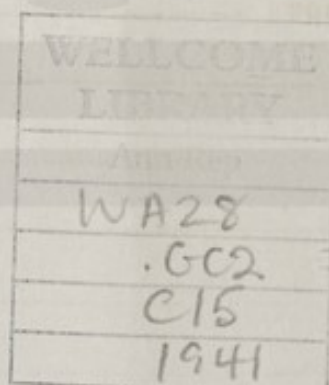 WELLCOME
LIBRARY
Ann Rep
WA28
.GC2
C15
1941